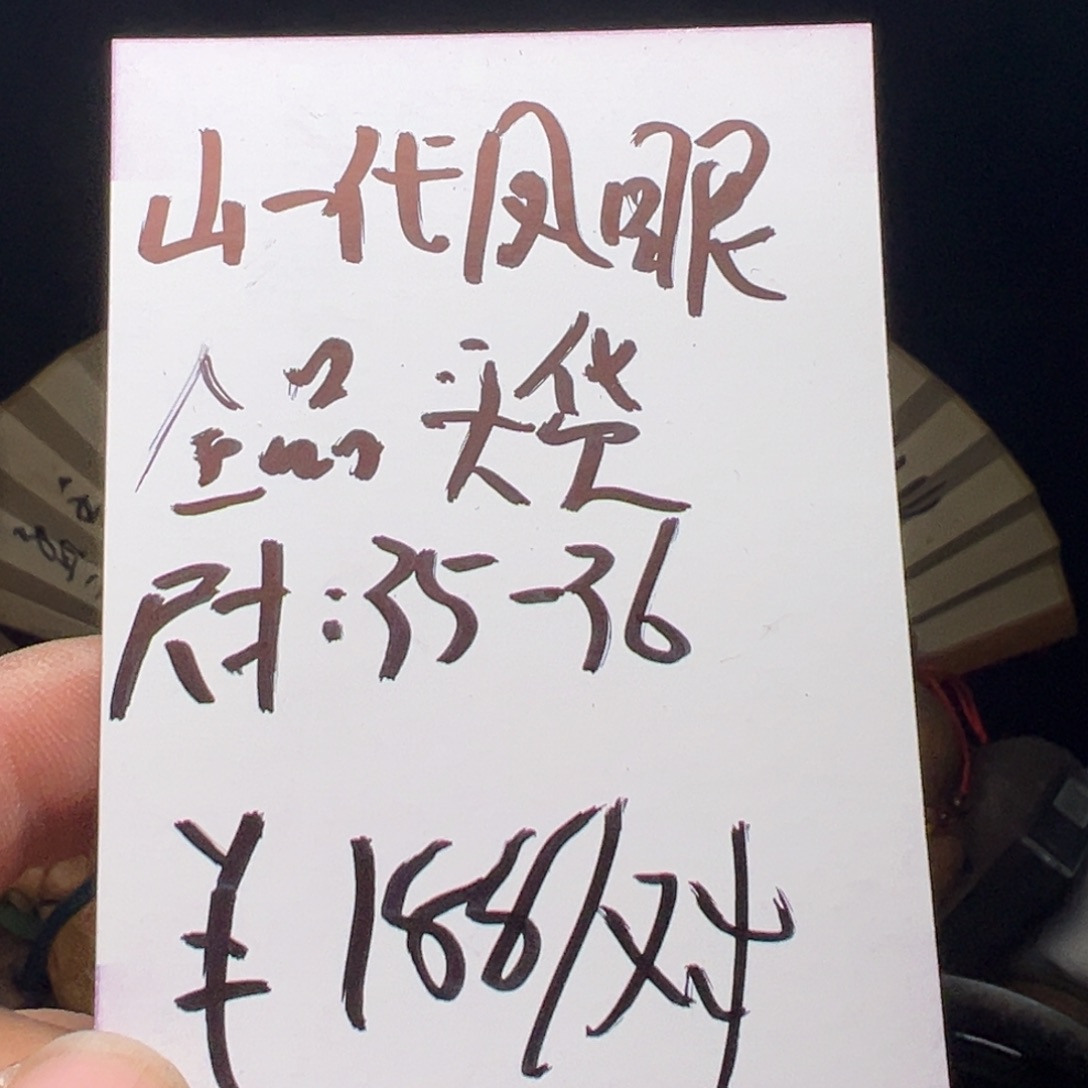 山一代凤眼
全品 尖货
尺寸:35-36
¥188/对